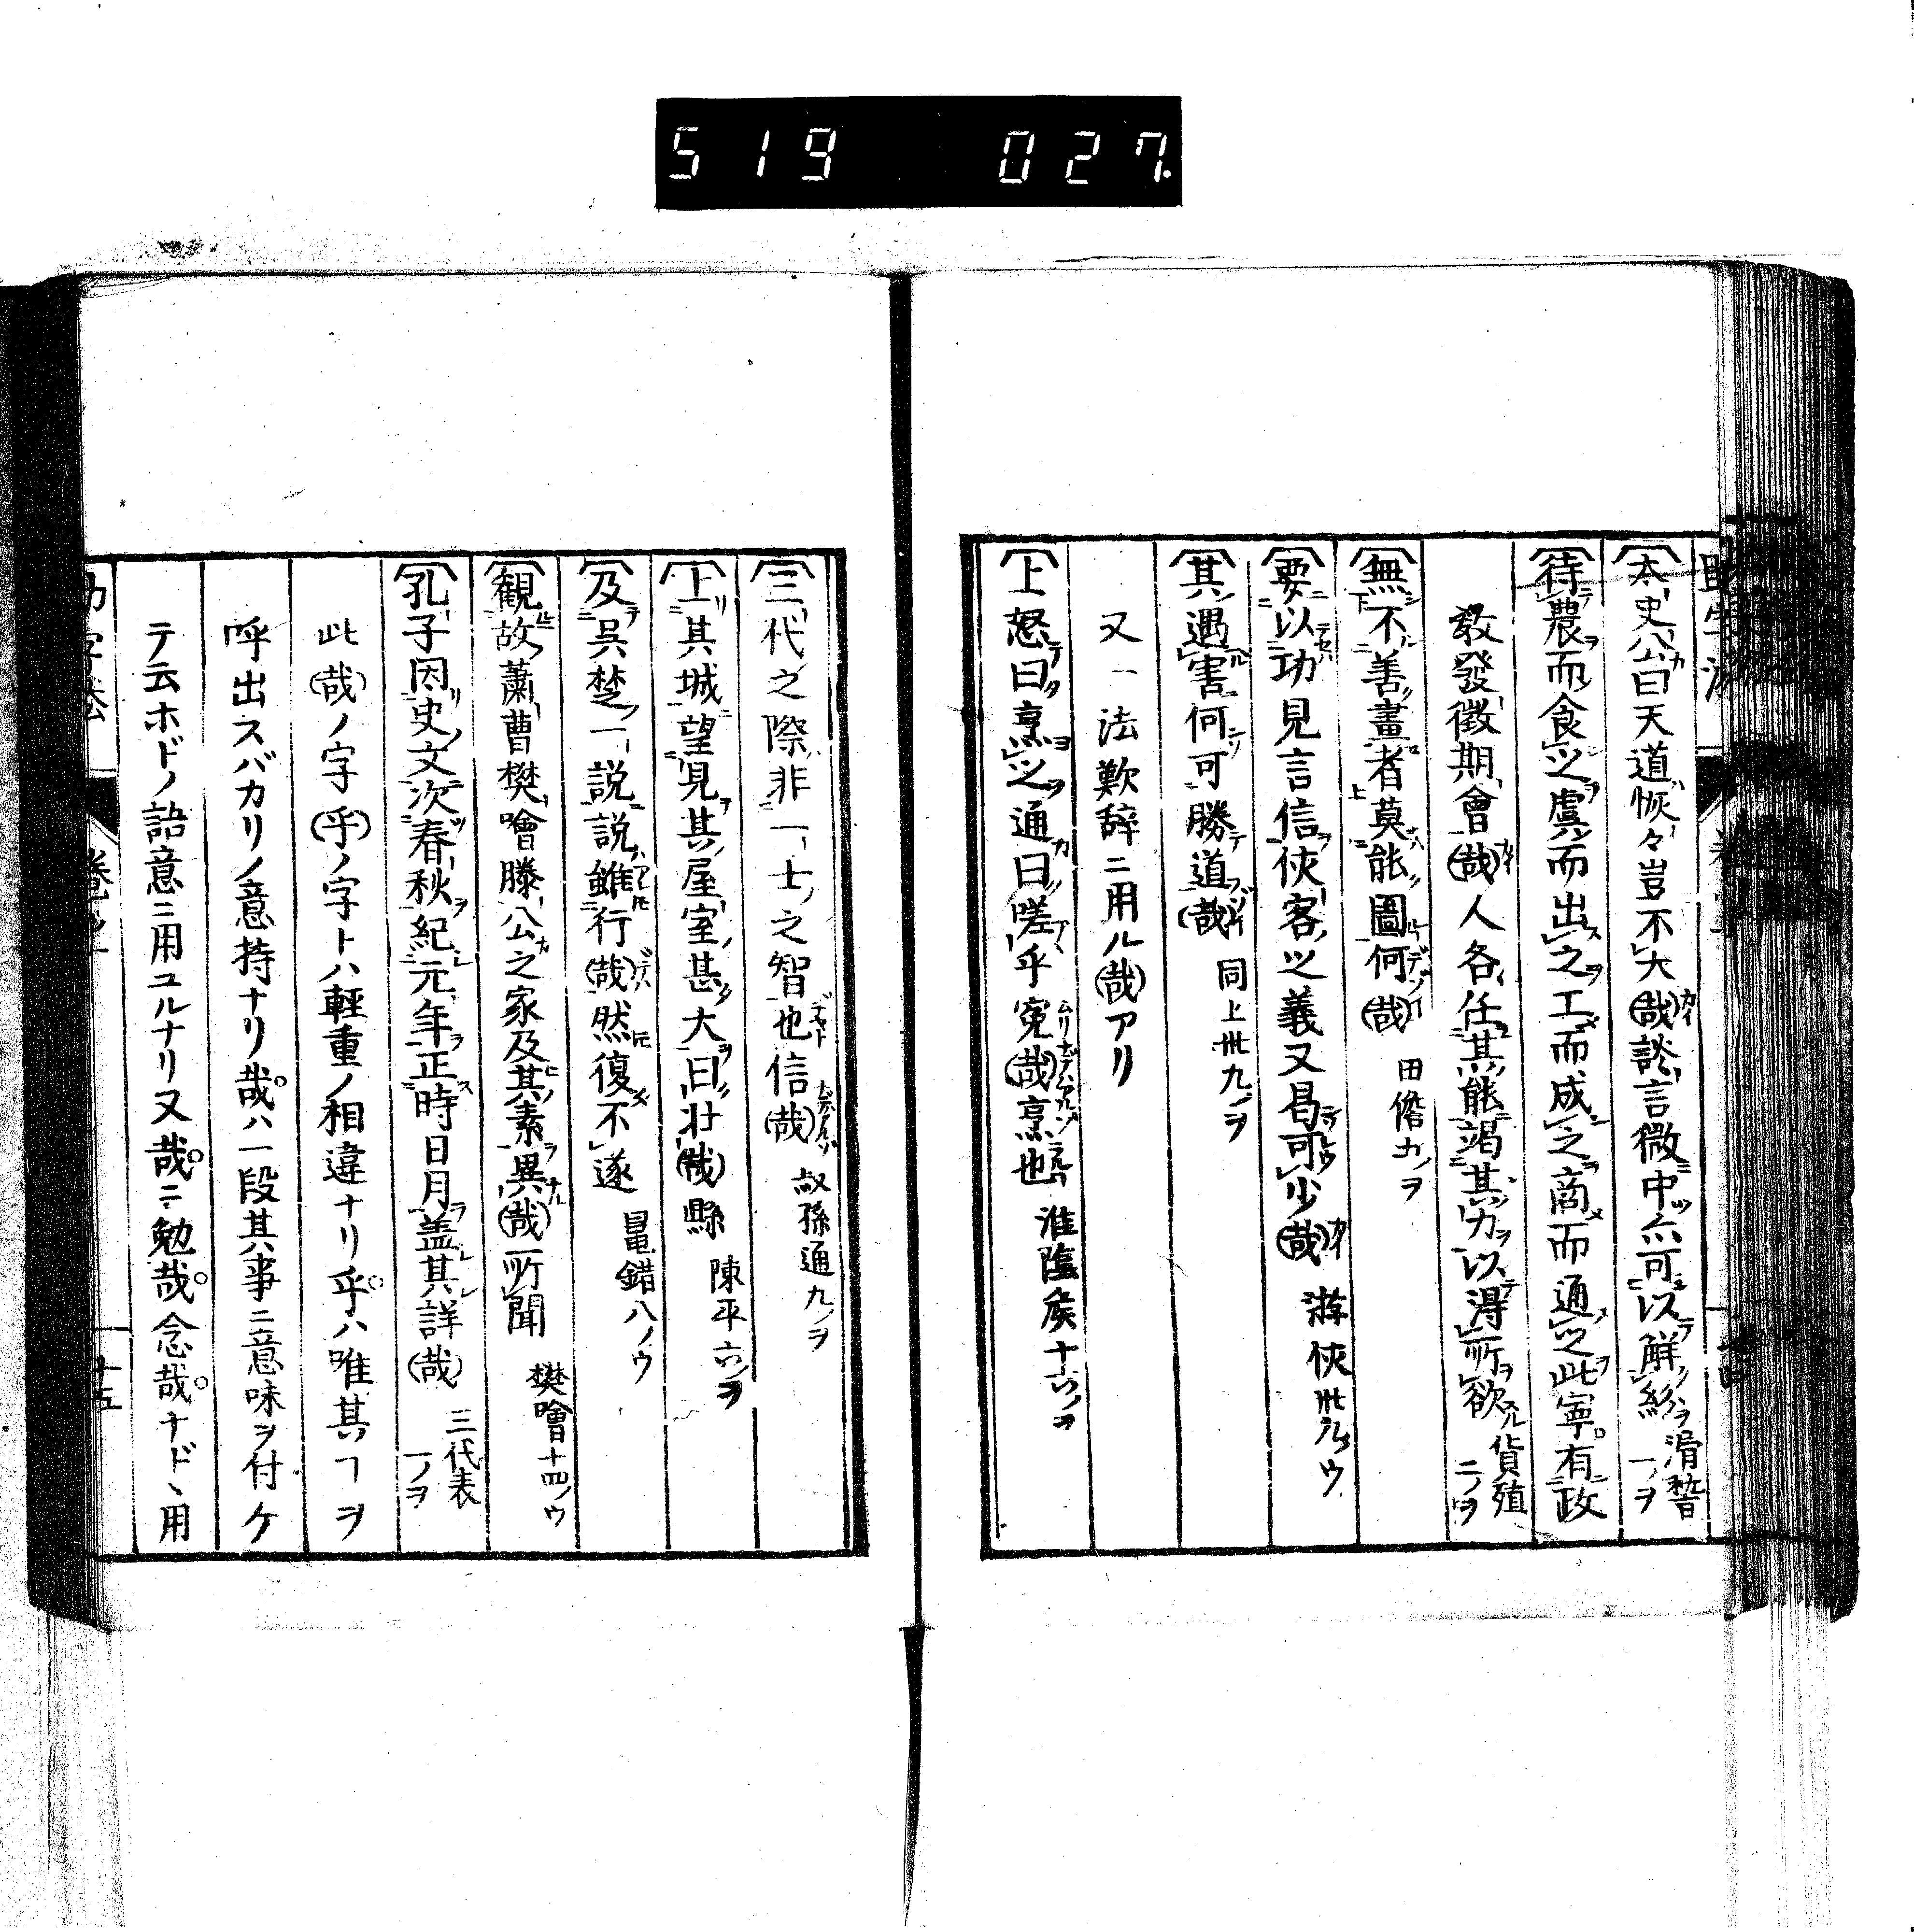 519 027
太史公曰天道恢々豈不大哉談言微中亦可以解紛 滑稽一ノヲ
待農而食之虞而出之工而成之商而通之此寧有政
教發徴期會哉人各任其能竭其力以得所欲 貨殖二ノヲ
無不善畫者莫能圖何哉 田儋九ノヲ
要以功見言信俠客之義又曷可少哉 游俠卅九ノウ
其遇害何可勝道哉 同上卅九ノヲ
又一法歎辞ニ用ル哉アリ
上怒曰烹之通曰嗟乎寃哉烹也 淮陰矦十六ノヲ
三代之際非一士之智也信哉 叔孫通九ノヲ
上其城望見其屋室甚大曰壮哉縣 陳平六ノヲ
及呉楚一説説雖行哉然復不遂 鼂錯八ノウ
観故蕭曹樊噲滕公之家及其素異哉所聞 樊噲十四ノウ
孔子因史文次春秋紀元年正時日月盖其詳哉 三代表一ノヲ
此哉ノ字乎ノ字トハ輕重ノ相違ナリ乎ハ唯其ヿヲ
呼出スバカリノ意持ナリ哉ハ一段其事ニ意味ヲ付ケ
テ云ホドノ語意ニ用ユルナリ又哉ニ勉哉念哉ナドヽ用
十五